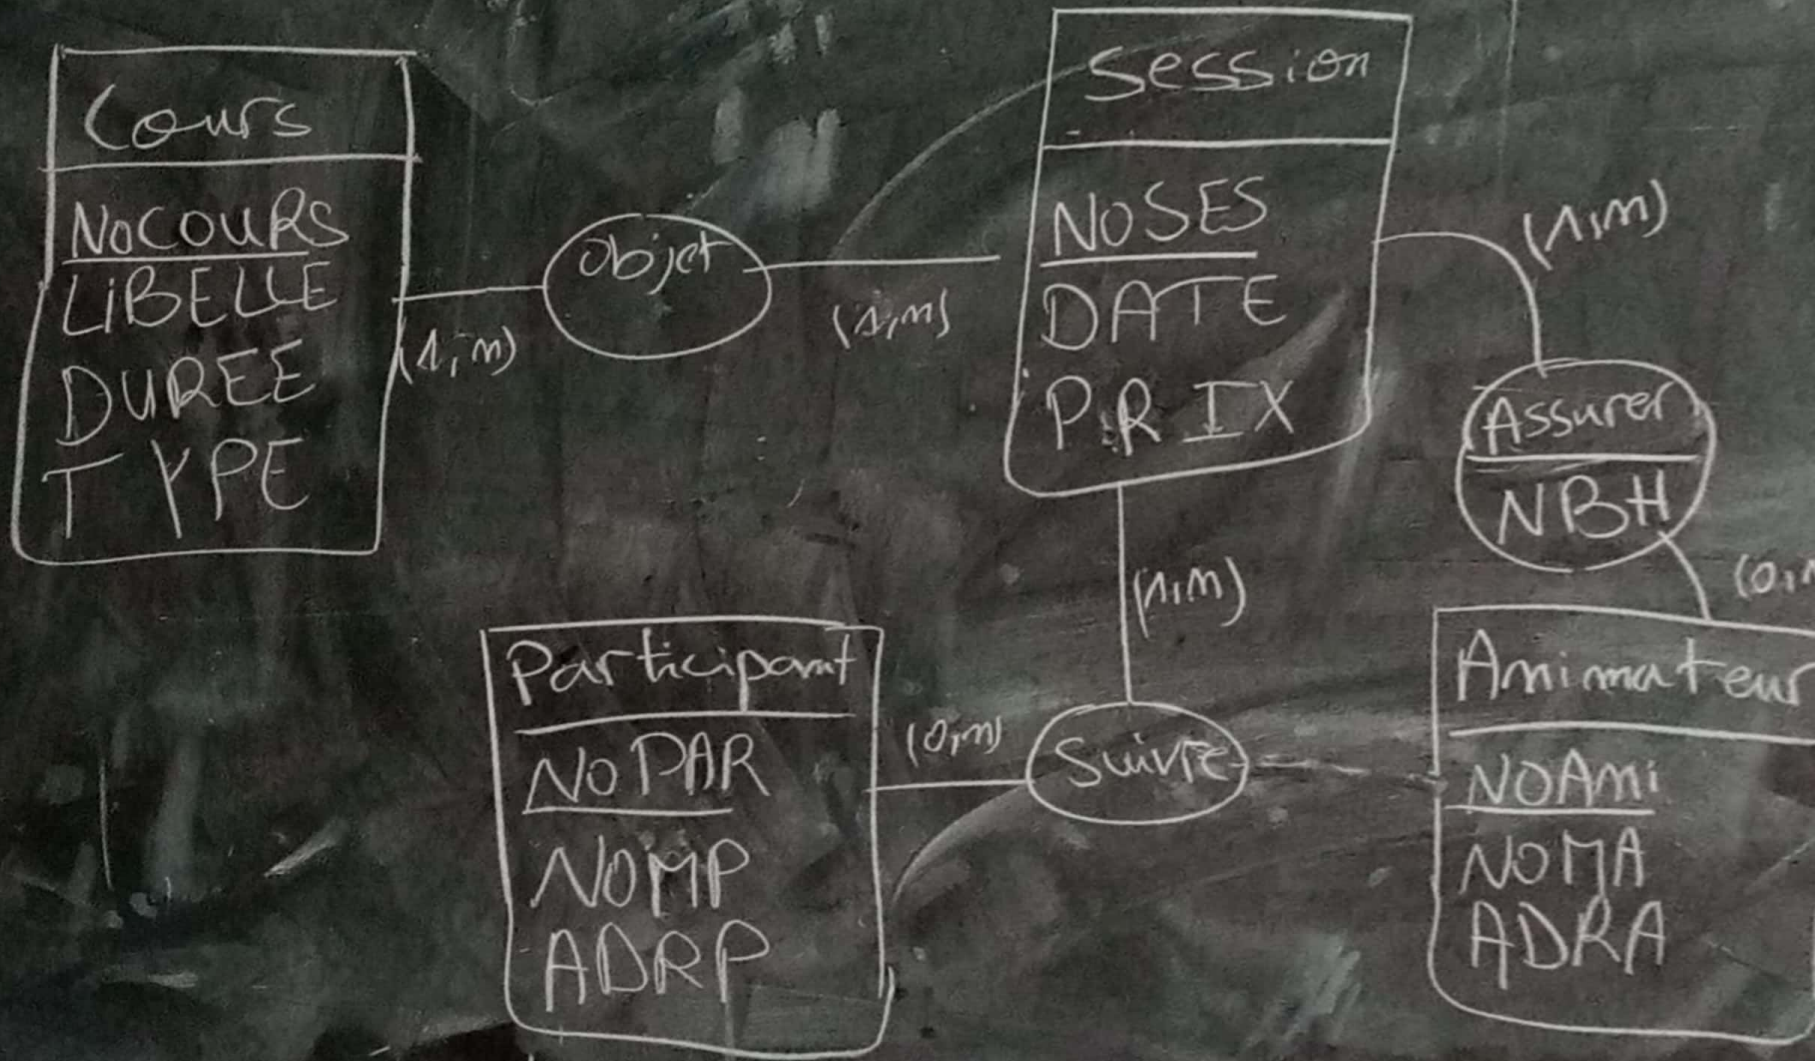 Cours
NOCOURS
LIBELLE
DUREE
TYPE
(1,n)
Objet
(1,n)
Session
NOSES
DATE
PRIX
(1,n)
Assurer
NBH
(0,n
(1,n)
Participant
NOPAR
NOMP
ADRP
(0,n)
Suivre
Animateur
NOAMI
NOMA
ADRA